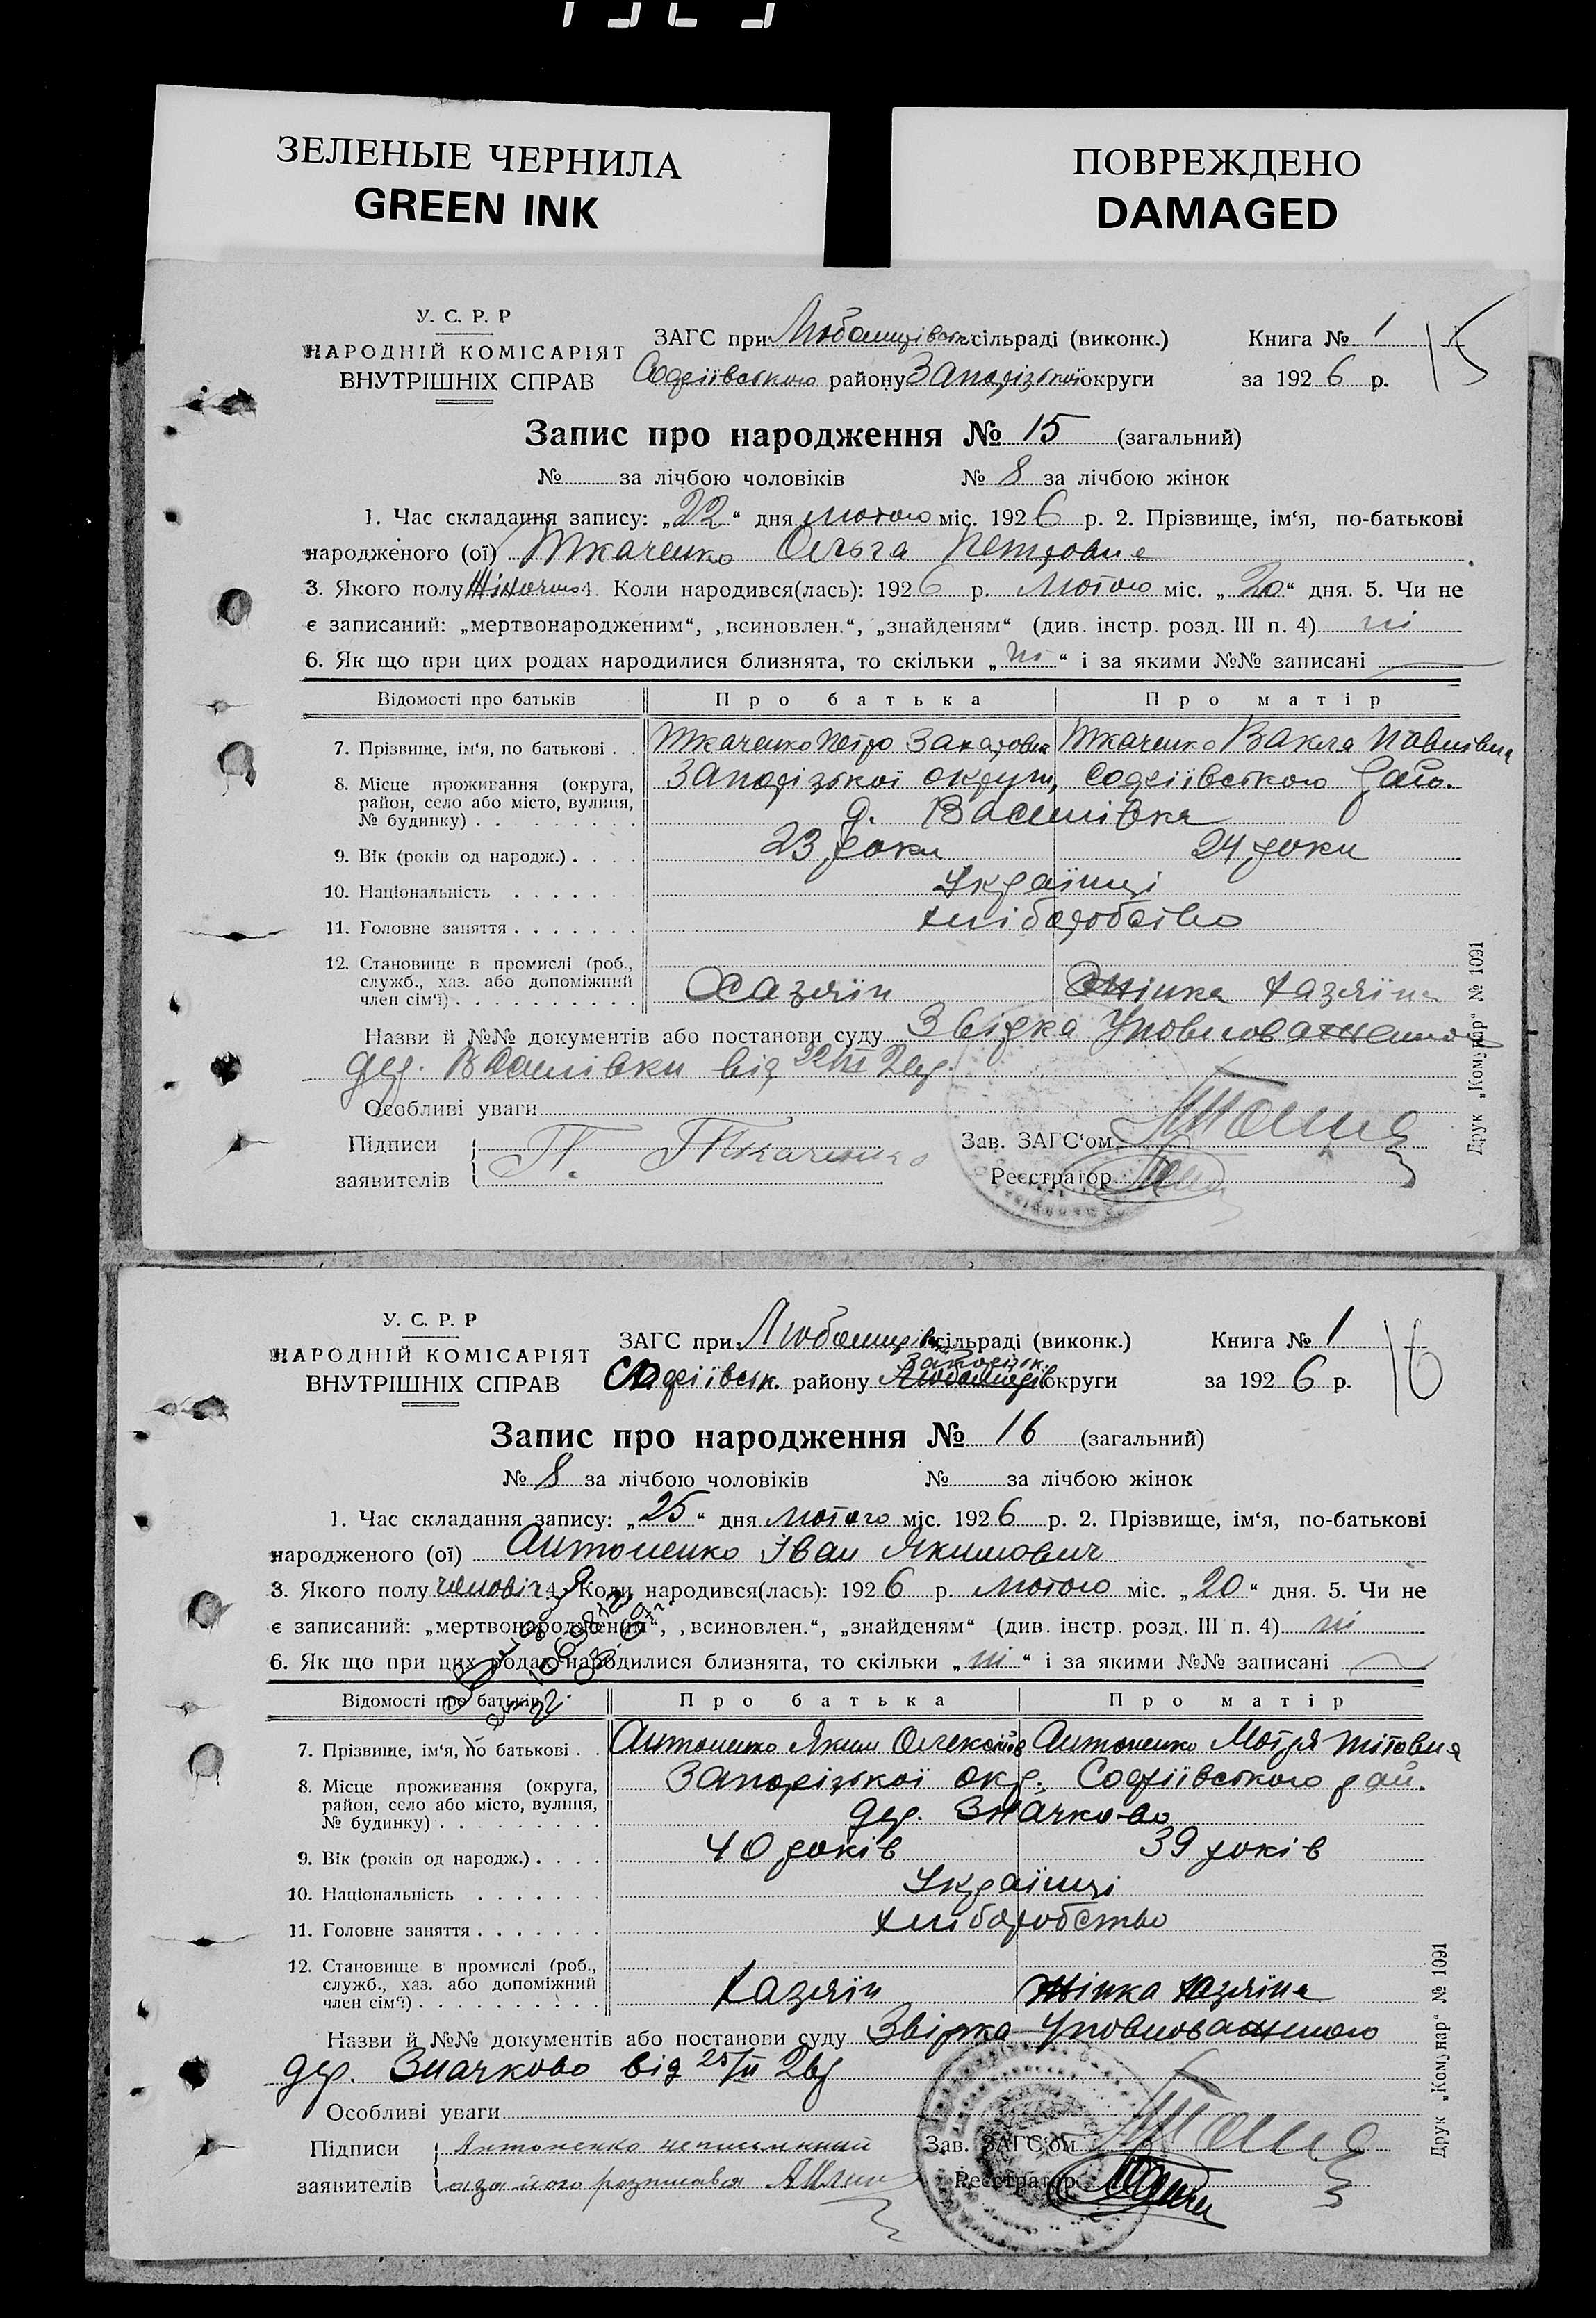 ЗЕЛЕНЫЕ ЧЕРНИЛА
GREEN INK
ПОВРЕЖДЕНО
DAMAGED
У. С. Р. Р
НАРОДНІЙ КОМІСАРІЯТ
ВНУТРІШНІХ СПРАВ
ЗАГС при Любомирівськ. сільраді (виконк.)
Софіївського району Запорізької округи
Книга № 1
за 1926 р.
15
Запис про народження № 15 (загальний)
№ за лічбою чоловіків № 8 за лічбою жінок
1. Час складання запису: „22“ дня лютого міс. 1926 р. 2. Прізвище, ім‘я, по-батькові
народженого (ої) Ткаченко Ольга Петровна
3. Якого полу Жіночого 4. Коли народився(лась): 1926 р. Лютого міс. „20“ дня. 5. Чи не
є записаний: „мертвонародженим“, „всиновлен.“, „знайденям“ (див. інстр. розд. III п. 4) ні
6. Як що при цих родах народилися близнята, то скільки „ні“ і за якими №№ записані
Відомості про батьків Про батька Про матір
7. Прізвище, ім‘я, по батькові . . Ткаченко Петро Захаровіч Ткаченко Вакла Павлівна
8. Місце проживання (округа, район, село або місто, вулиця, № будинку) . Запорізької округи, Софіївського рай.
д. Василівка
9. Вік (років од народж.) . . . . 23 роки 24 роки
10. Національність . . . . . . Українці
11. Головне заняття . . . . . . . хліборобство
12. Становище в промислі (роб., служб., хаз. або допоміжний член сім‘ї) . Хазяїн Жінка хазяїна
Назви й №№ документів або постанови суду Звірка Уповноваженого
дер. Василівки від 22/II 26р.
Особливі уваги
Підписи заявителів П. Ткаченко
Зав. ЗАГС‘ом
Реєстратор
Друк „Комунар“ № 1091
У. С. Р. Р
НАРОДНІЙ КОМІСАРІЯТ
ВНУТРІШНІХ СПРАВ
ЗАГС при Любомирівськ. сільраді (виконк.)
Запорізьк.
Софіївськ. району Любомирів округи
Книга № 1
за 1926 р.
16
Запис про народження № 16 (загальний)
№ 8 за лічбою чоловіків № за лічбою жінок
1. Час складання запису: „25“ дня лютого міс. 1926 р. 2. Прізвище, ім‘я, по-батькові
народженого (ої) Антоненко Іван Якимович
3. Якого полу чоловіч. 4. Коли народився(лась): 1926 р. лютого міс. „20“ дня. 5. Чи не
є записаний: „мертвонародженим“, „всиновлен.“, „знайденям“ (див. інстр. розд. III п. 4) ні
6. Як що при цих родах народилися близнята, то скільки „ні“ і за якими №№ записані
Відомості про батьків Про батька Про матір
7. Прізвище, ім‘я, по батькові . . Антоненко Яким Олексіїв Антоненко Мотря Тітовна
8. Місце проживання (округа, район, село або місто, вулиця, № будинку) . Запорізької окр. Софіївського рай.
дер. Значково
9. Вік (років од народж.) . . . . 40 років 39 років
10. Національність . . . . . . . Українці
11. Головне заняття . . . . . . . хліборобство
12. Становище в промислі (роб., служб., хаз. або допоміжний член сім‘ї) . Хазяїн жінка хазяїна
Назви й №№ документів або постанови суду Звірка Уповноваженного
дер. Значково від 25/II 26р
Особливі уваги
Підписи заявителів Антоненко неписьмений
а за його розписався
Зав. ЗАГС‘ом
Реєстратор
Друк „Комунар“ № 1091